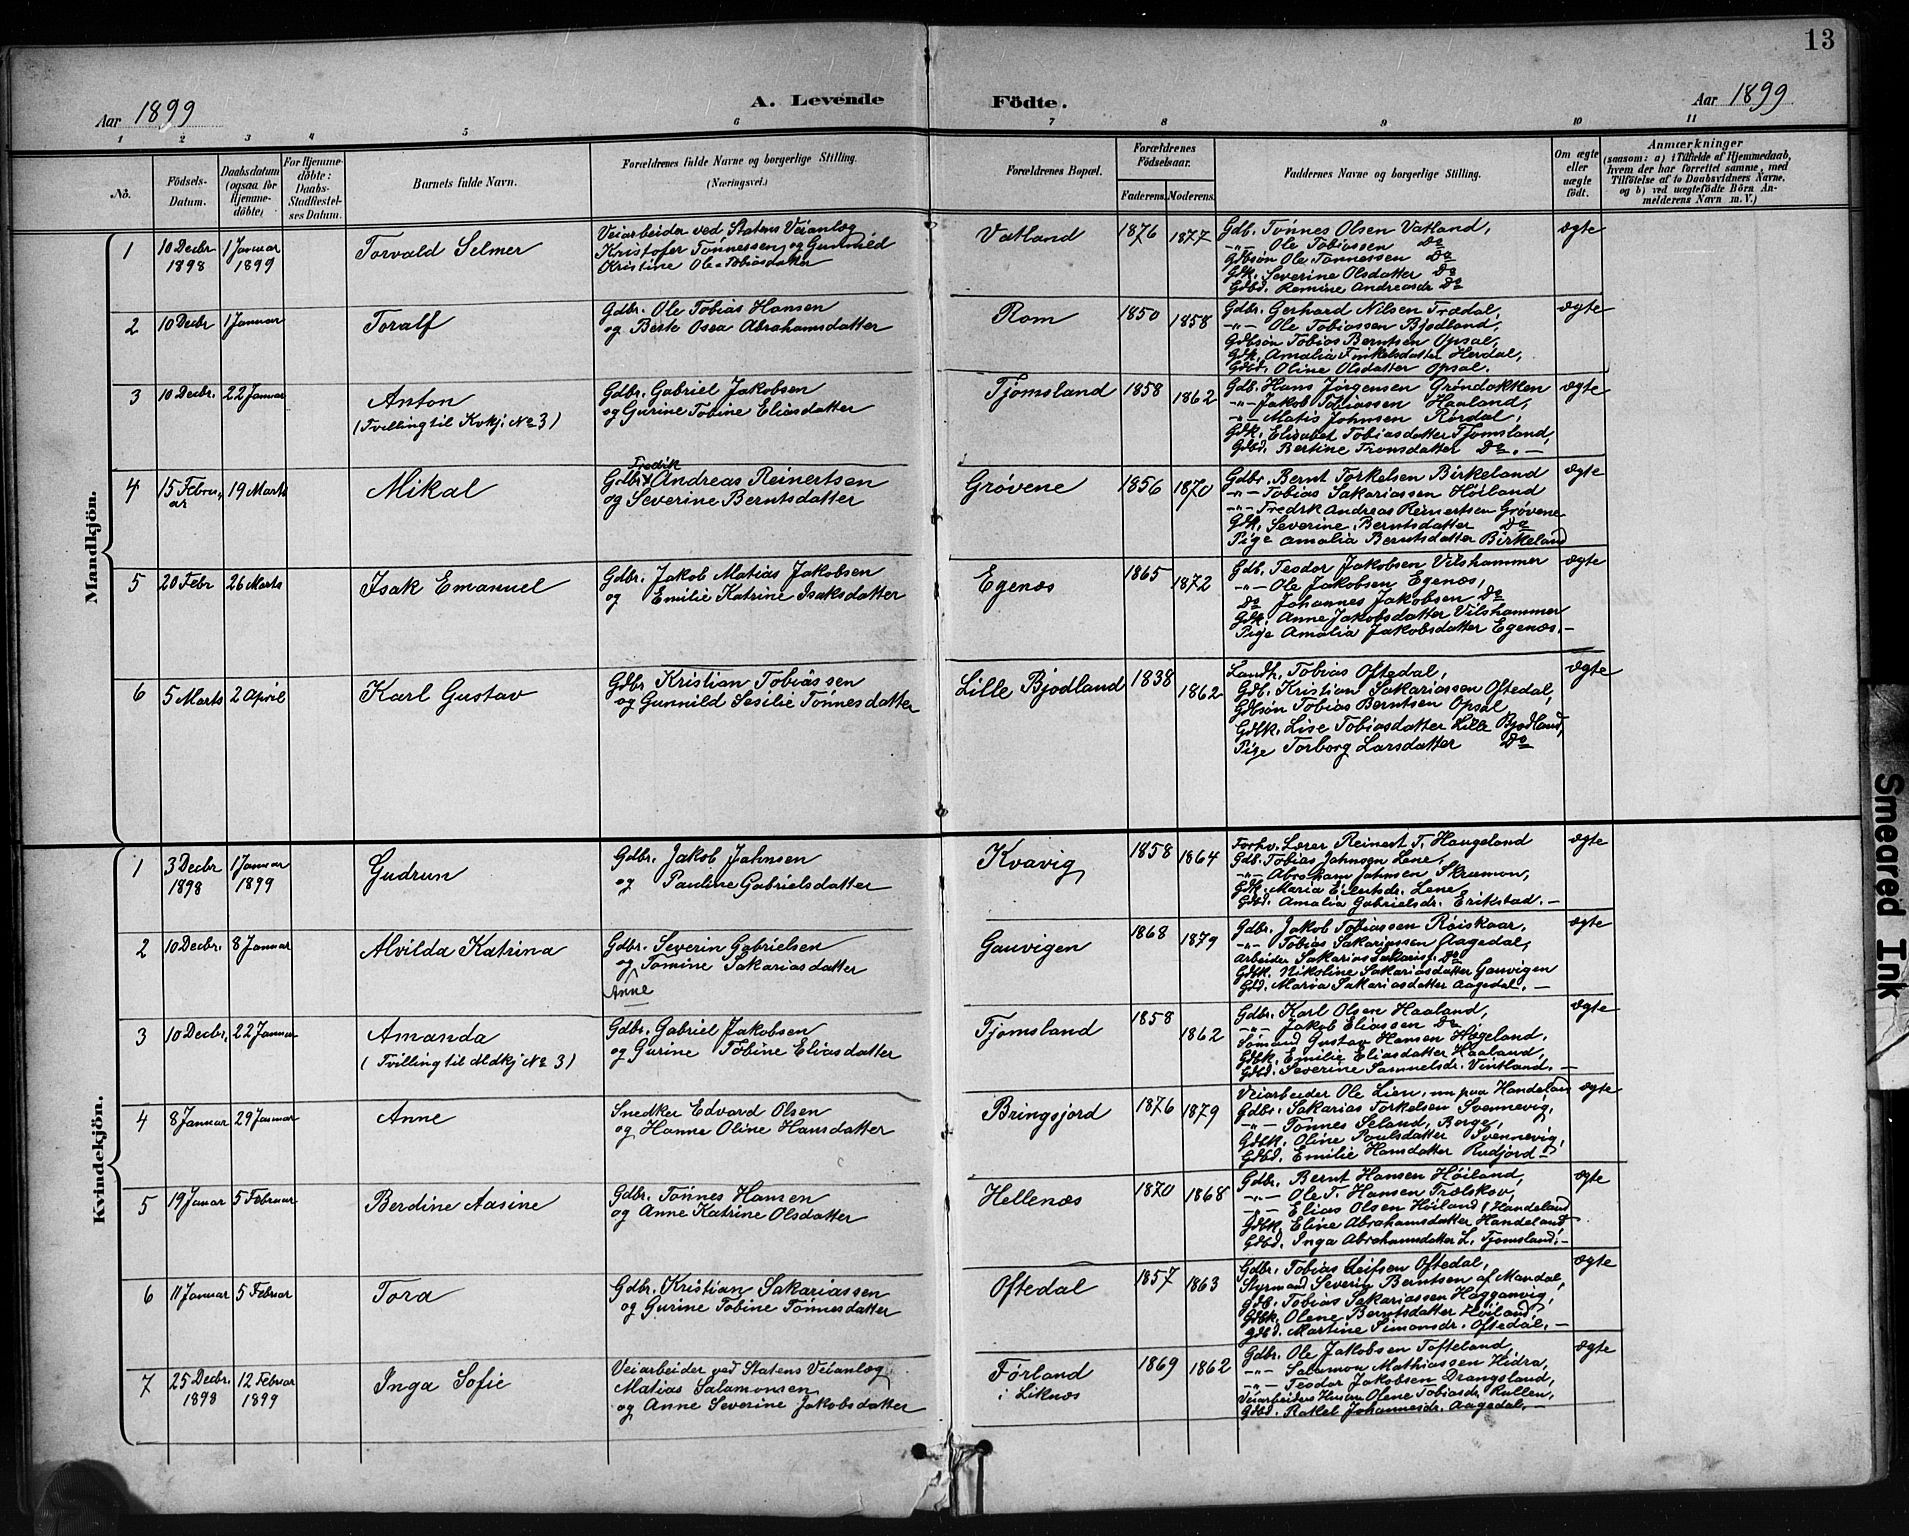 13
Aar 1899
A. Levende Födte.
Aar 1899
1 2 3 4 5 6 7 8 9 10 11
No.
Födsels-Datum.
Daabsdatum (ogsaa for Hjemme-döbte)
For Hjemme-döbte: Daabs-Stadfæstel-ses Datum.
Barnets fulde Navn.
Forældrenes fulde Navne og borgerlige Stilling.
(Næringsvei.)
Forældrenes Bopæl.
Forældrenes Födselsaar.
Faderens. Moderens.
Faddernes Navne og borgerlige Stilling.
Om ægte eller uægte födt.
Anmærkninger
(saasom: a) i Tilfælde af Hjemmedaab, hvem der har forrettet samme, med Tilföielse af to Daabsvidners Navne, og b) ved uægtefödte Börn An-melderens Navn m. V.)
Mandkjön.
1 10 Decbr 1898 1 Januar 1899 Torvald Selmer
Veiarbeider ved Statens Veianlæg
Kristofer Tønnessen og Gunnild
Kristine Ole Tobiasdatter
Vatland 1876 1877
Gdb. Tønnes Olsen Vatland,
-"- Ole Tobiassen Do
Gdbsøn Ole Tønnessen Do
Gdk. Severine Olsdatter Do
Gdbd. Remine Andreasdr Do
ægte
2 10 Decbr 1 Januar Toralf
Gdbr. Ole Tobias Hansen
og Berte Osea Abrahamsdatter
Rom 1850 1858
Gdbr. Gerhard Nilsen Trædal,
-"- Ole Tobiassen Bjodland,
Gdbsøn Tobias Berntsen Opsal,
Gdk. Amalia Finkelsdatter Herdal,
Gdbd. Oline Olsdatter Opsal.
ægte
3 10 Decbr. 22 Januar Anton
(Tvilling til Kvkj. No 3)
Gdbr. Gabriel Jakobsen
og Gurine Tobine Eliasdatter
Tjomsland 1858 1862
Gdb. Hans Jørgensen Grøndokken
-"- Jakob Tobiassen Haaland,
-"- Matis Johnsen Rørdal,
Gdk. Elisabet Tobiasdatter Tjomsland,
Gdbd. Bertine Tromsdatter Do. —
ægte
4 15 Februar 19 Marts Mikal
Fredrik
Gdbr. Andreas Reinertsen
og Severine Berntsdatter
Grøvene 1856 1870
Gdbr. Bernt Torkelsen Birkeland
-"- Tobias Sakariassen Høiland
-"- Fredrk Andreas Reinertsen Grøvene
Gdk. Severine Berntsdatter Do
Pige Amalia Berntsdatter Birkeland
ægte
5 20 Febr 26 Marts Isak Emanuel
Gdbr. Jakob Matias Jakobsen
og Emilie Katrine Isaksdatter
Egenæs 1865 1872
Gdb. Teodor Jakobsen Vilshammer
-"- Ole Jakobsen Egenæs,
Do Johannes Jakobsen Do
Gdk. Anne Jakobsdatter Vilshammer
Pige Amalia Jakobsdatter Egenæs. —
ægte
6 5 Marts 2 April Karl Gustav
Gdbr Kristian Tobiassen
og Gunnild Sesilie Tønnesdatter
Lille Bjodland 1838 1862
Landh. Tobias Oftedal,
Gdb. Kristian Sakariassen Oftedal,
Gdbsøn Tobias Berntsen Opsal,
Gdbk. Lise Tobiasdatter Lille Bjodland,
Pige Torborg Larsdatter Do
ægte
Kvindekjön.
1 3 Decbr 1898 1 Januar 1899 Gudrun
Gdbr. Jakob Jahnsen
og Pauline Gabrielsdatter
Kvavig 1858 1864
Forhv. Lærer Reinert T. Haugeland
Gdb. Tobias Jahnsen Lene,
-"- Abraham Jahnsen Skrumon,
Gdk. Maria Eilertsdr. Lene,
Gdbd. Amalia Gabrielsdr. Erikstad. —
ægte
2 10 Decbr. 8 Januar Alvilda Katrina
Gdbr. Severin Gabrielsen
og Tomine Sakariasdatter
Anne
Gauvigen 1868 1879
Gdbr. Jakob Tobiassen Røiskaar,
-"- Tobias Sakariassen Aagedal,
Arbeider Sakarias Sakarias. Do
Gdbk. Nikoline Sakariasdatter Gauvigen
Gbd. Maria Sakariasdatter Aagedal. —
ægte
3 10 Decbr. 22 Januar Amanda
(Tvilling til Mdkj No 3)
Gdbr. Gabriel Jakobsen
og Gurine Tobine Eliasdatter
Tjomsland 1858 1862
Gdbr. Karl Olsen Haaland,
-"- Jakob Eliassen Do
Sømand Gustav Hansen Högeland,
Gdbk. Emilie Eliasdatter Haaland,
Gdbd. Severine Samuelsdr. Vintland. —
ægte
4 8 Januar 29 Januar Anne
Snedker Edvard Olsen
og Hanne Oline Hansdatter
Bringsjord 1876 1879
Veiarbeider Ole Lien, nu paa Handeland
Gdbr. Sakarias Torkelsen Svennevig,
-"- Tønnes Seland, Borge,
Gdbk. Oline Poulsdatter Svennevig,
Gdbd. Emilie Hansdatter Rudjord —
ægte
5 19 Januar 5 Februar Berdine Aasine
Gdbr. Tönnes Hansen
og Anne Katrine Olsdatter
Hellenæs 1870 1868
Gdbr. Bernt Hansen Höiland,
-"- Ole T. Hansen Trælskov,
-"- Elias Olsen Höiland (Handeland
Gdbk. Eline Abrahamsdatter Handeland
Gdbd. Inga Abrahamsdatter L. Tjomsland. —
ægte
6 11 Januar 5 Februar Tora
Gdbr. Kristian Sakariassen
og Gurine Tobine Tönnesdatter
Oftedal 1857 1863
Gdbr. Tobias Leifsen Oftedal,
Styrmand Severin Berntsen af Mandal,
Gdb. Tobias Sakariassen Hægganvig,
Gdbk. Olene Berntsdatter Höiland
Gdbd. Martine Simonsdr. Oftedal. —
ægte
7 25 Decbr. 1898 12 Februar 1899 Inga Sofie
Veiarbeider ved Statens Veianlæg
Matias Salamonsen
og Anne Severine Jakobsdatter
Førland i Liknæs 1869 1862
Gdbr. Ole Jakobsen Tofteland,
-"- Salamon Mathiassen Hidra,
-"- Teodor Jakobsen Drangsland,
Veiarbeiders Hustru Olene Tobiasdr. Rullen,
Gdbd. Rakel Johannesdr. Aagedal. —
ægte
Smeared Ink